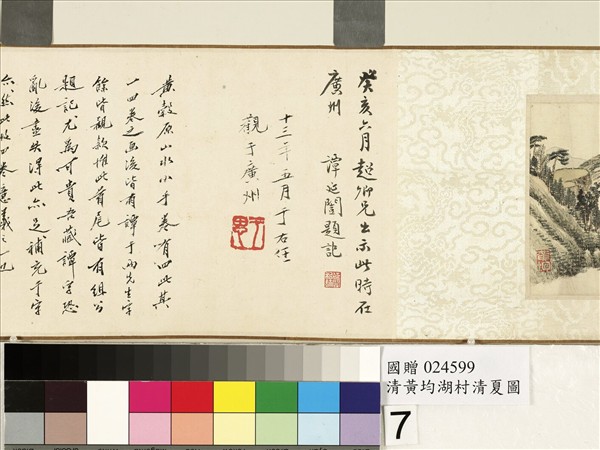 癸亥六月超卿兄出示此時在
廣州　譚延闓題記
十三年五月于右任
觀于廣州
黃穀原山水小手卷有四此其
一四卷之畫後皆有譚于兩先生字
餘皆觀款惟此首尾皆有組公
題記尤為可貴吾藏譚字恐
亂後盡失得此亦足補充于字
亦然此收四卷意義之一也
國贈 024599
清黃均湖村清夏圖
7